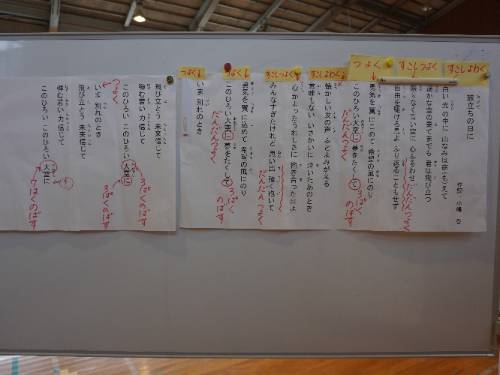 すこしよわく
すこしつよく
つよく
すこしよわく
すこしつよく
つよく
つよく
旅立ちの日に
作詞 小嶋 登
白い光の中に 山なみは萌えて
遥かな空の果てまでも 君は飛び立つ
限りなく青い空に 心ふるわせ
自由を駆ける鳥よ ふり返ることもせず
だんだんつよく
勇気を翼にこめて 希望の風にのり
このひろい大空に 夢をたくして
だんだんつよく
3ぱく
のばす
懐かしい友の声 ふとよみがえる
意味もないいさかいに 泣いたあのとき
心かよったうれしさに 抱き合った日よ
みんなすぎたけれど 思い出強く抱いて
だんだんつよく
勇気を翼に込めて 希望の風にのり
このひろい大空に 夢をたくして
だんだんつよく
3ぱく
のばす
いま 別れのとき
飛び立とう 未来信じて
弾む若い力信じて
このひろい このひろい 大空に
3ぱく
のばす
つよく
いま 別れのとき
飛び立とう 未来信じて
弾む若い力信じて
このひろい このひろい 大空に
ぱくのばす